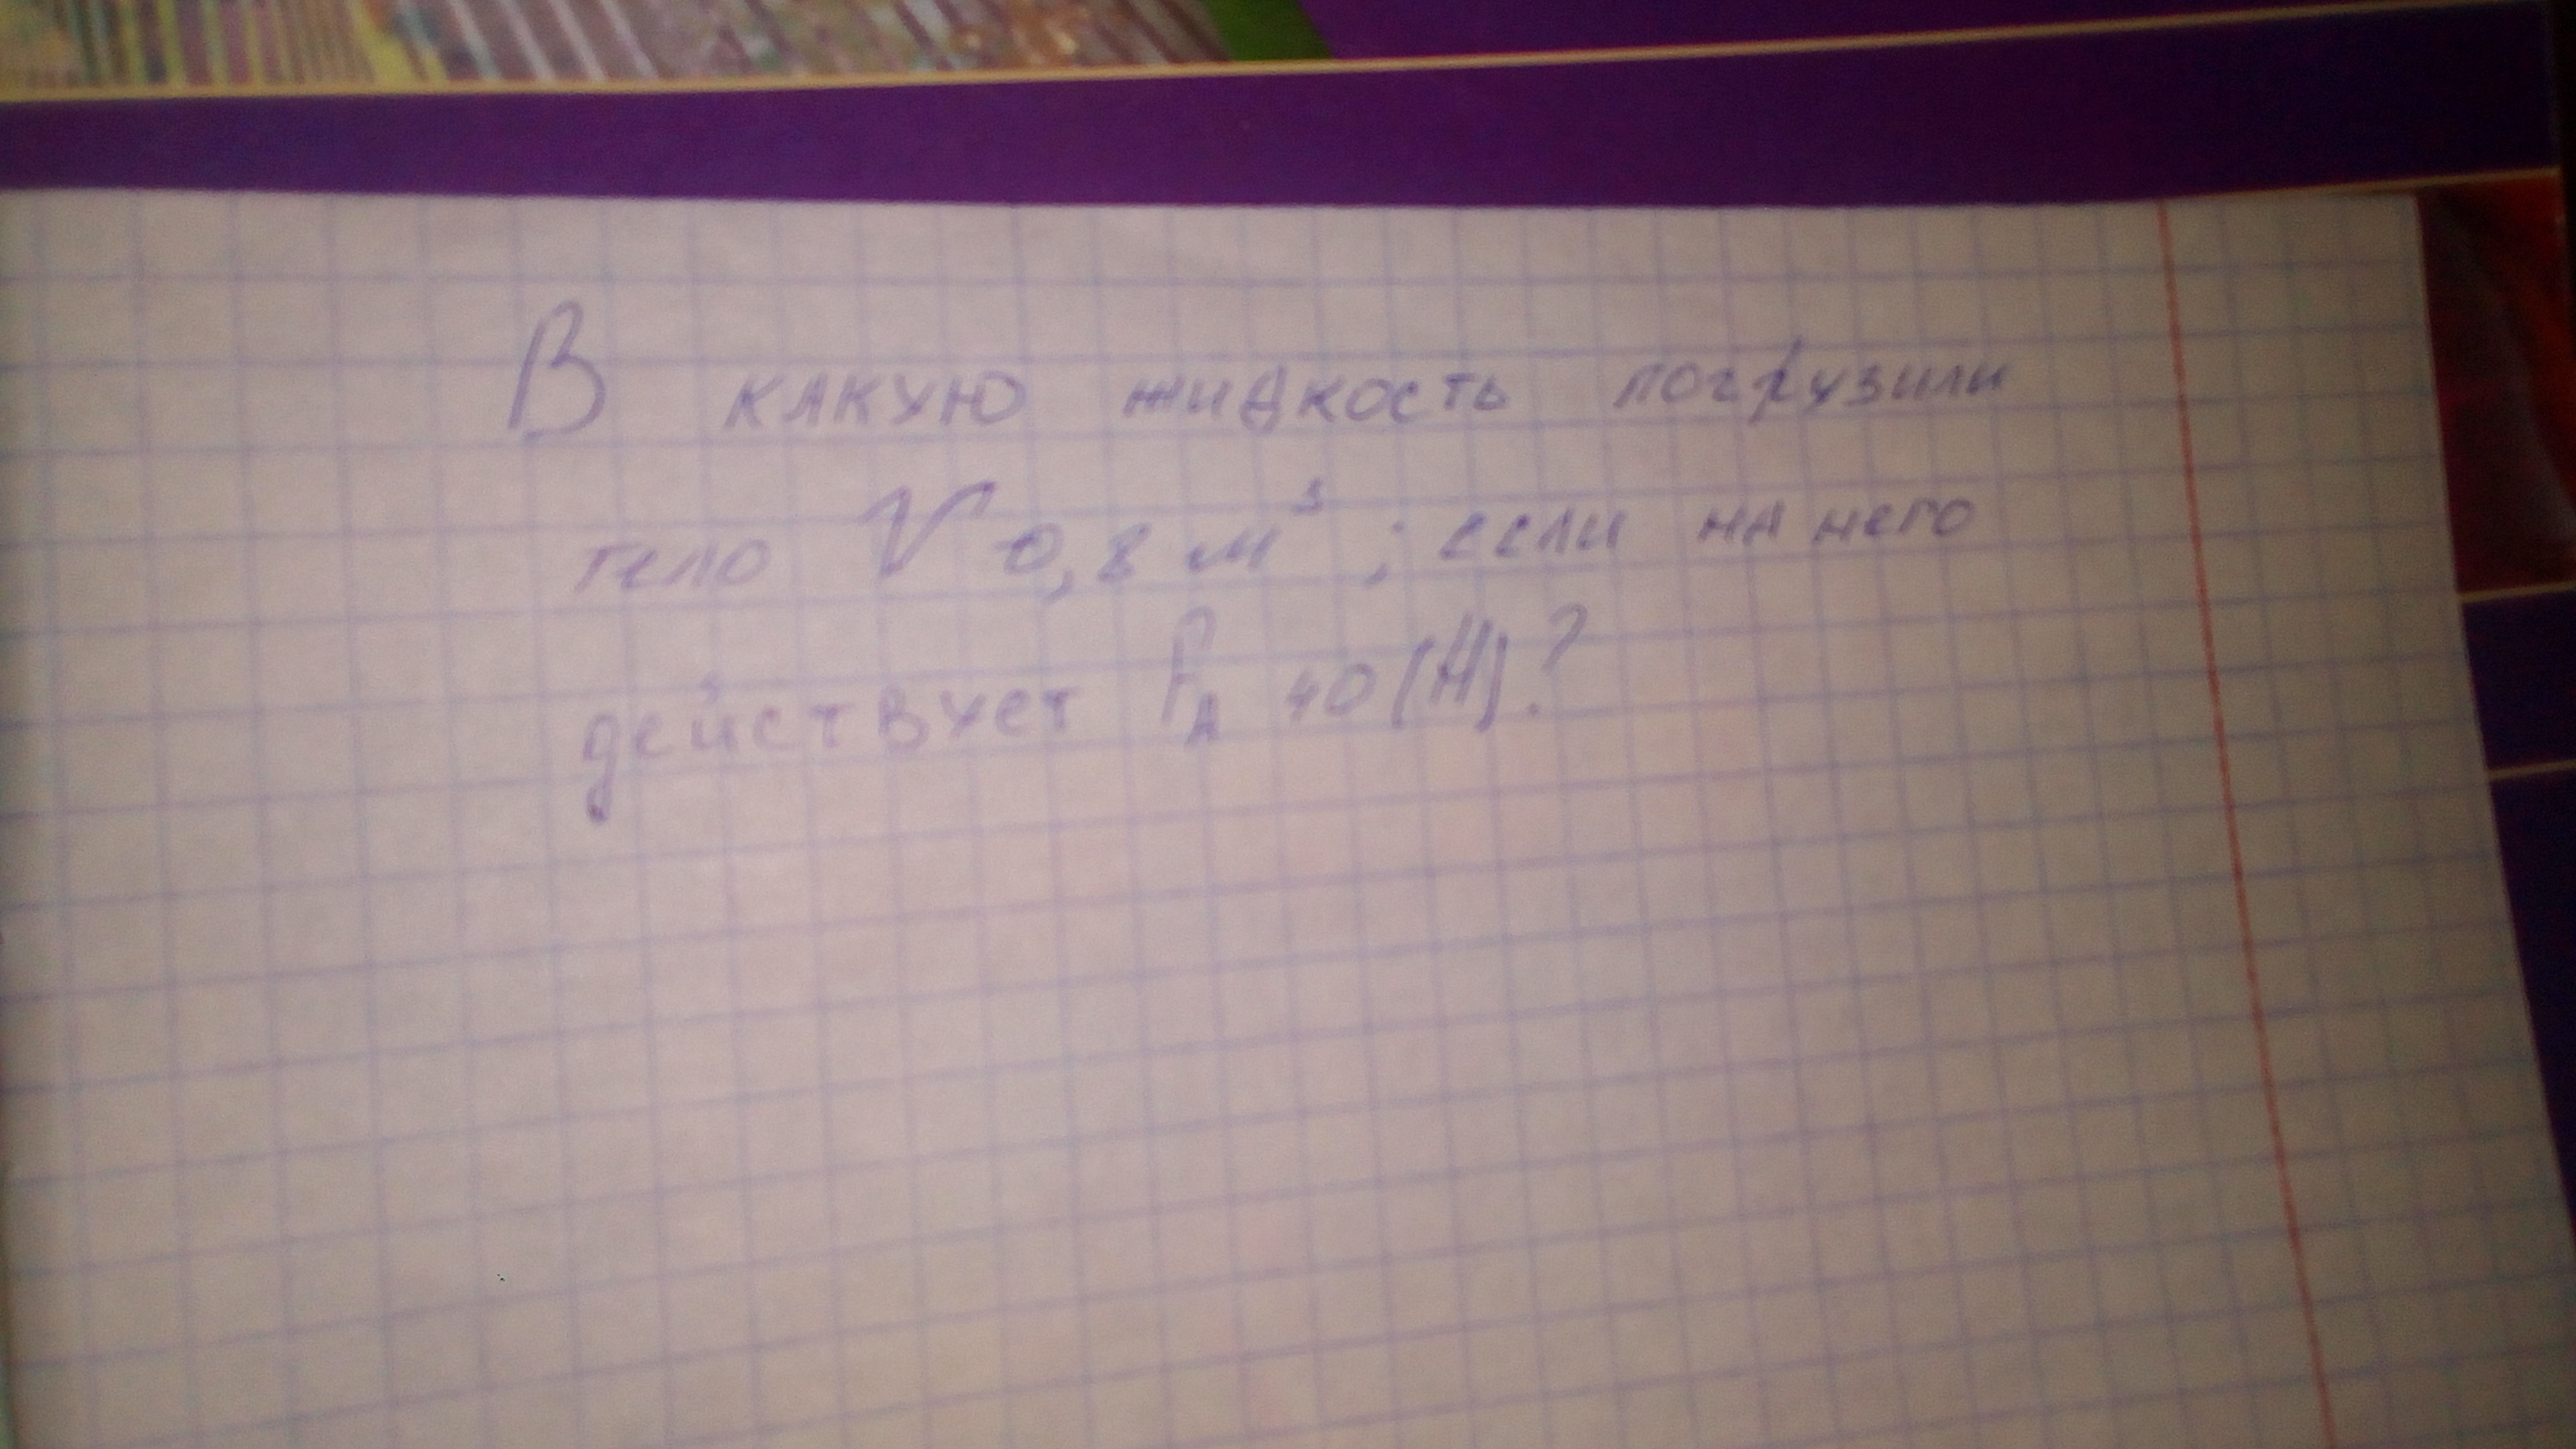 В какую жидкость погрузили
тело V 0,8 м³; если на него
действует FA 40 (Н).?